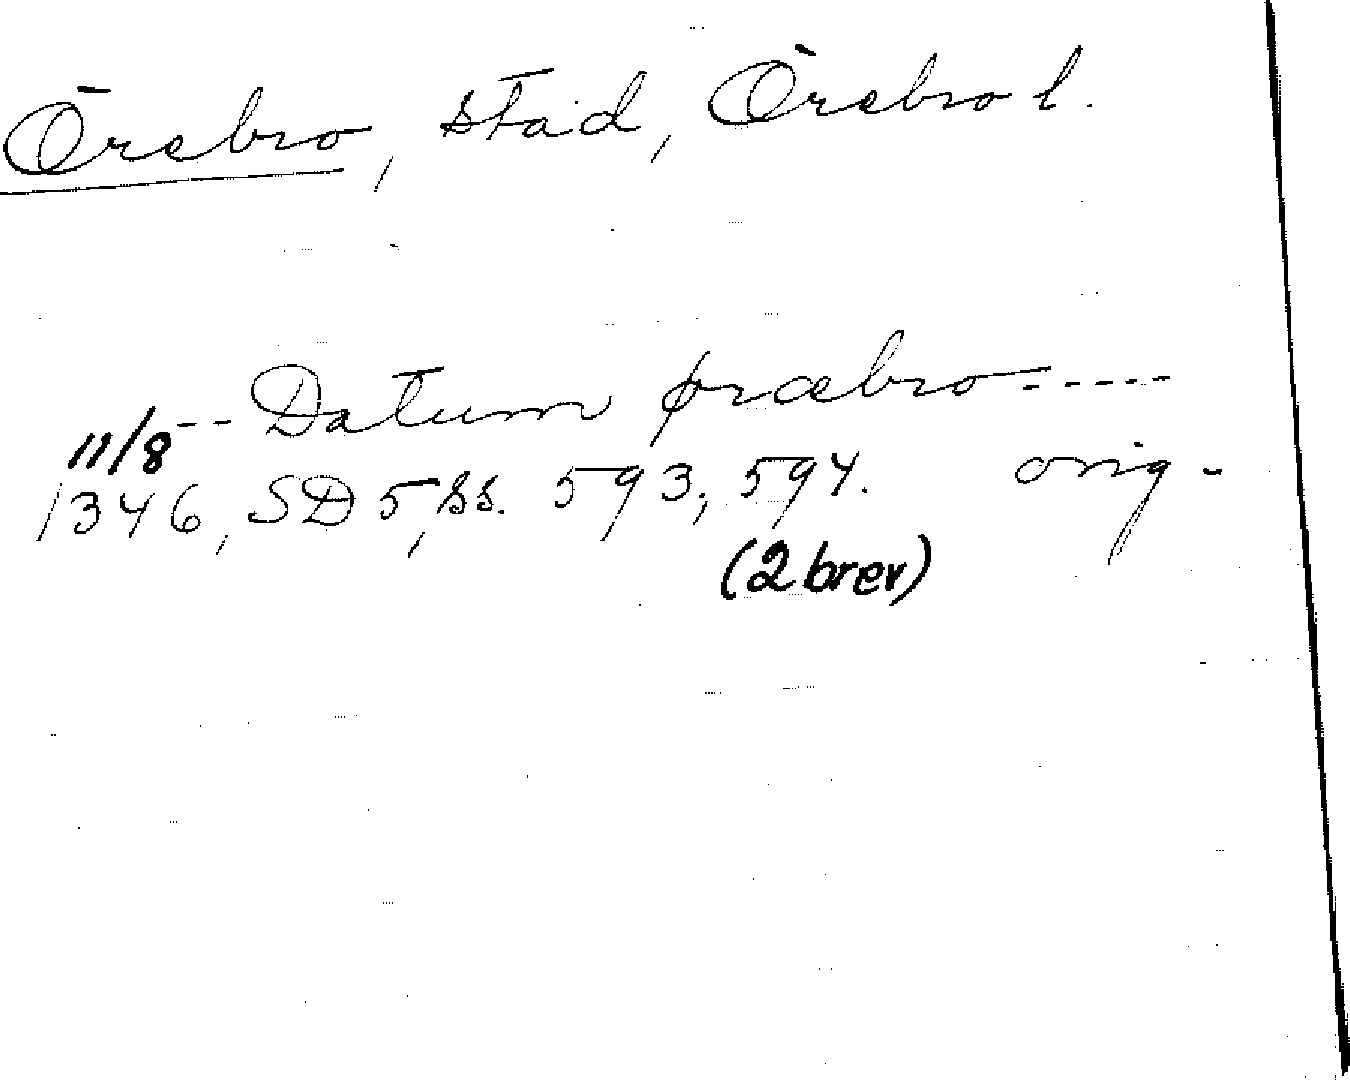 Örebro, stad, Örebro l.
-- Datum øræbro -----
11/8
1346, SD 5, ss. 593, 594. orig.
(2 brev)